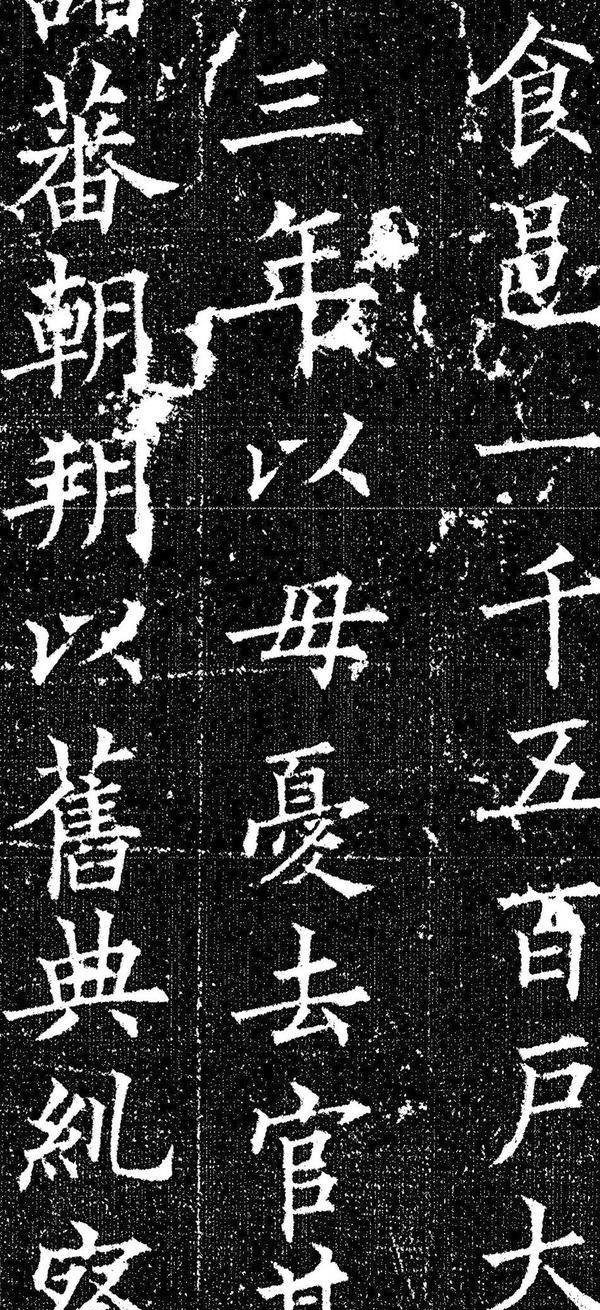 食邑一千五百戶大
三年以母憂去官其
蕃朝朔以舊典糺察